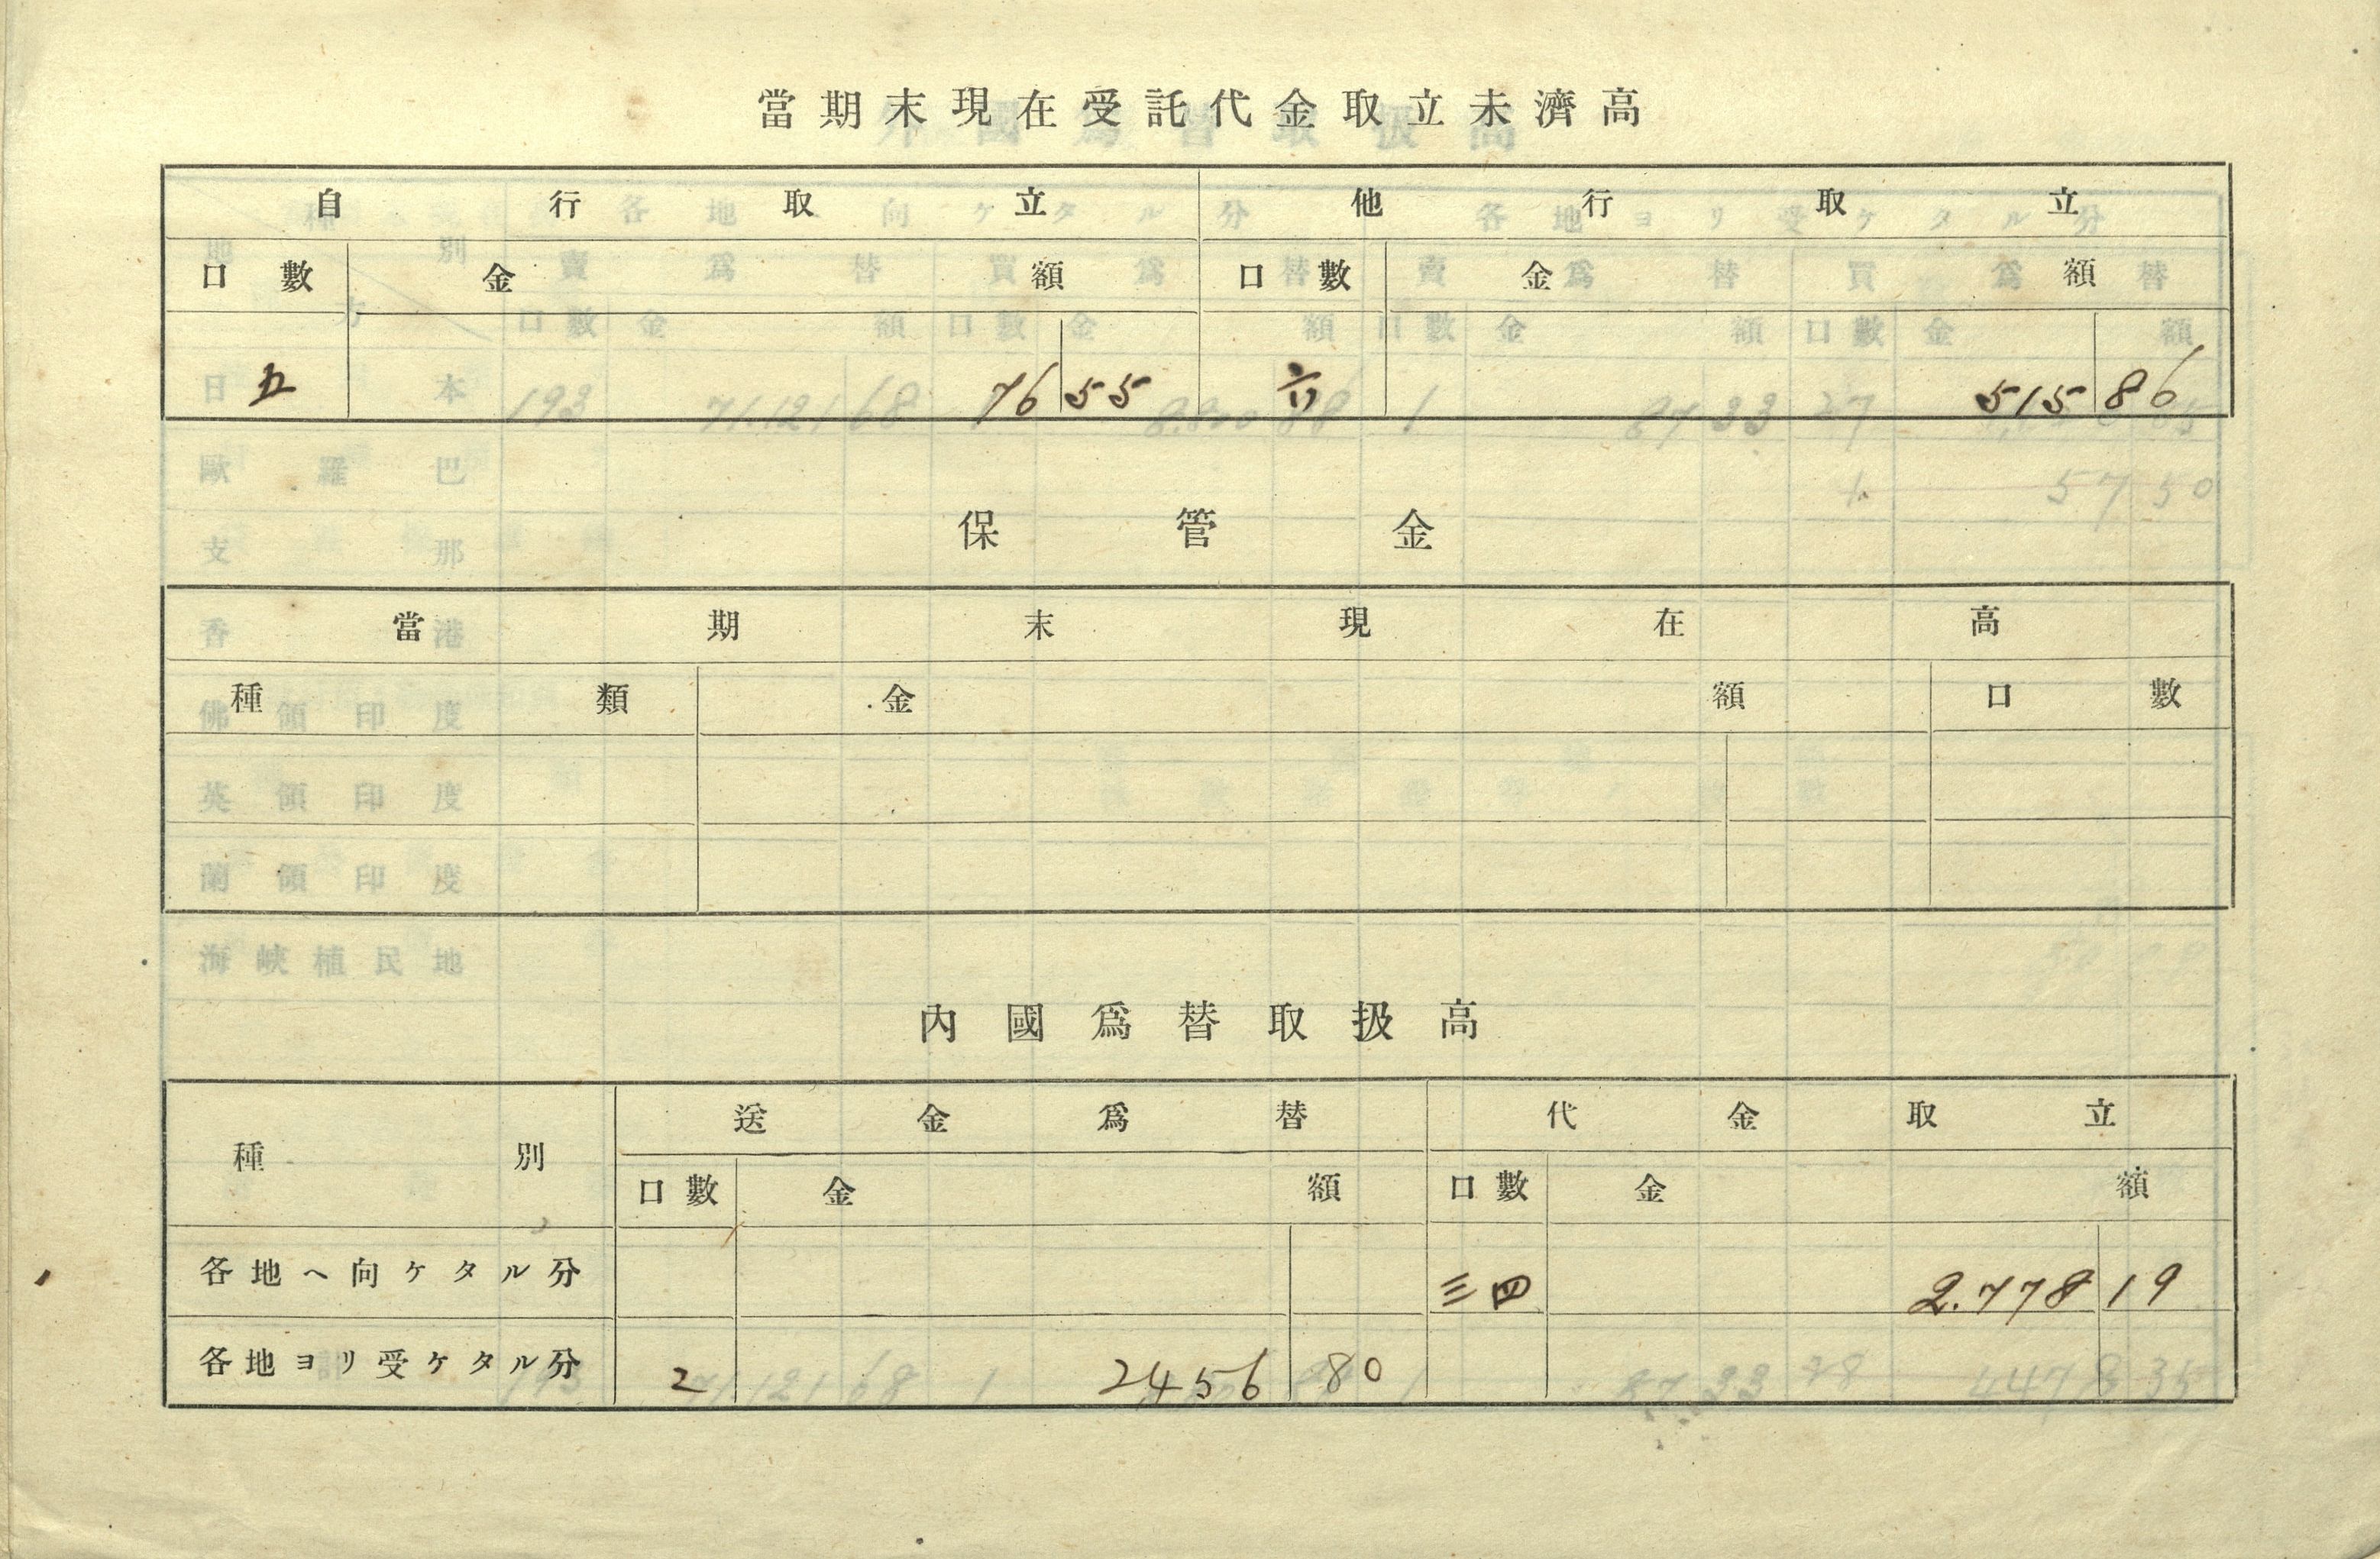 當期末現在受託代金取立未濟高
自行取立 他行取立
口數 金額 口數 金額
五 76 55 六 515 86
保管金
當期末現在高
種類 金額 口數
內國爲替取扱高
種別 送金爲替 代金取立
口數 金額 口數 金額
各地ヘ向ケタル分 三四 2.778 19
各地ヨリ受ケタル分 2 2456 80